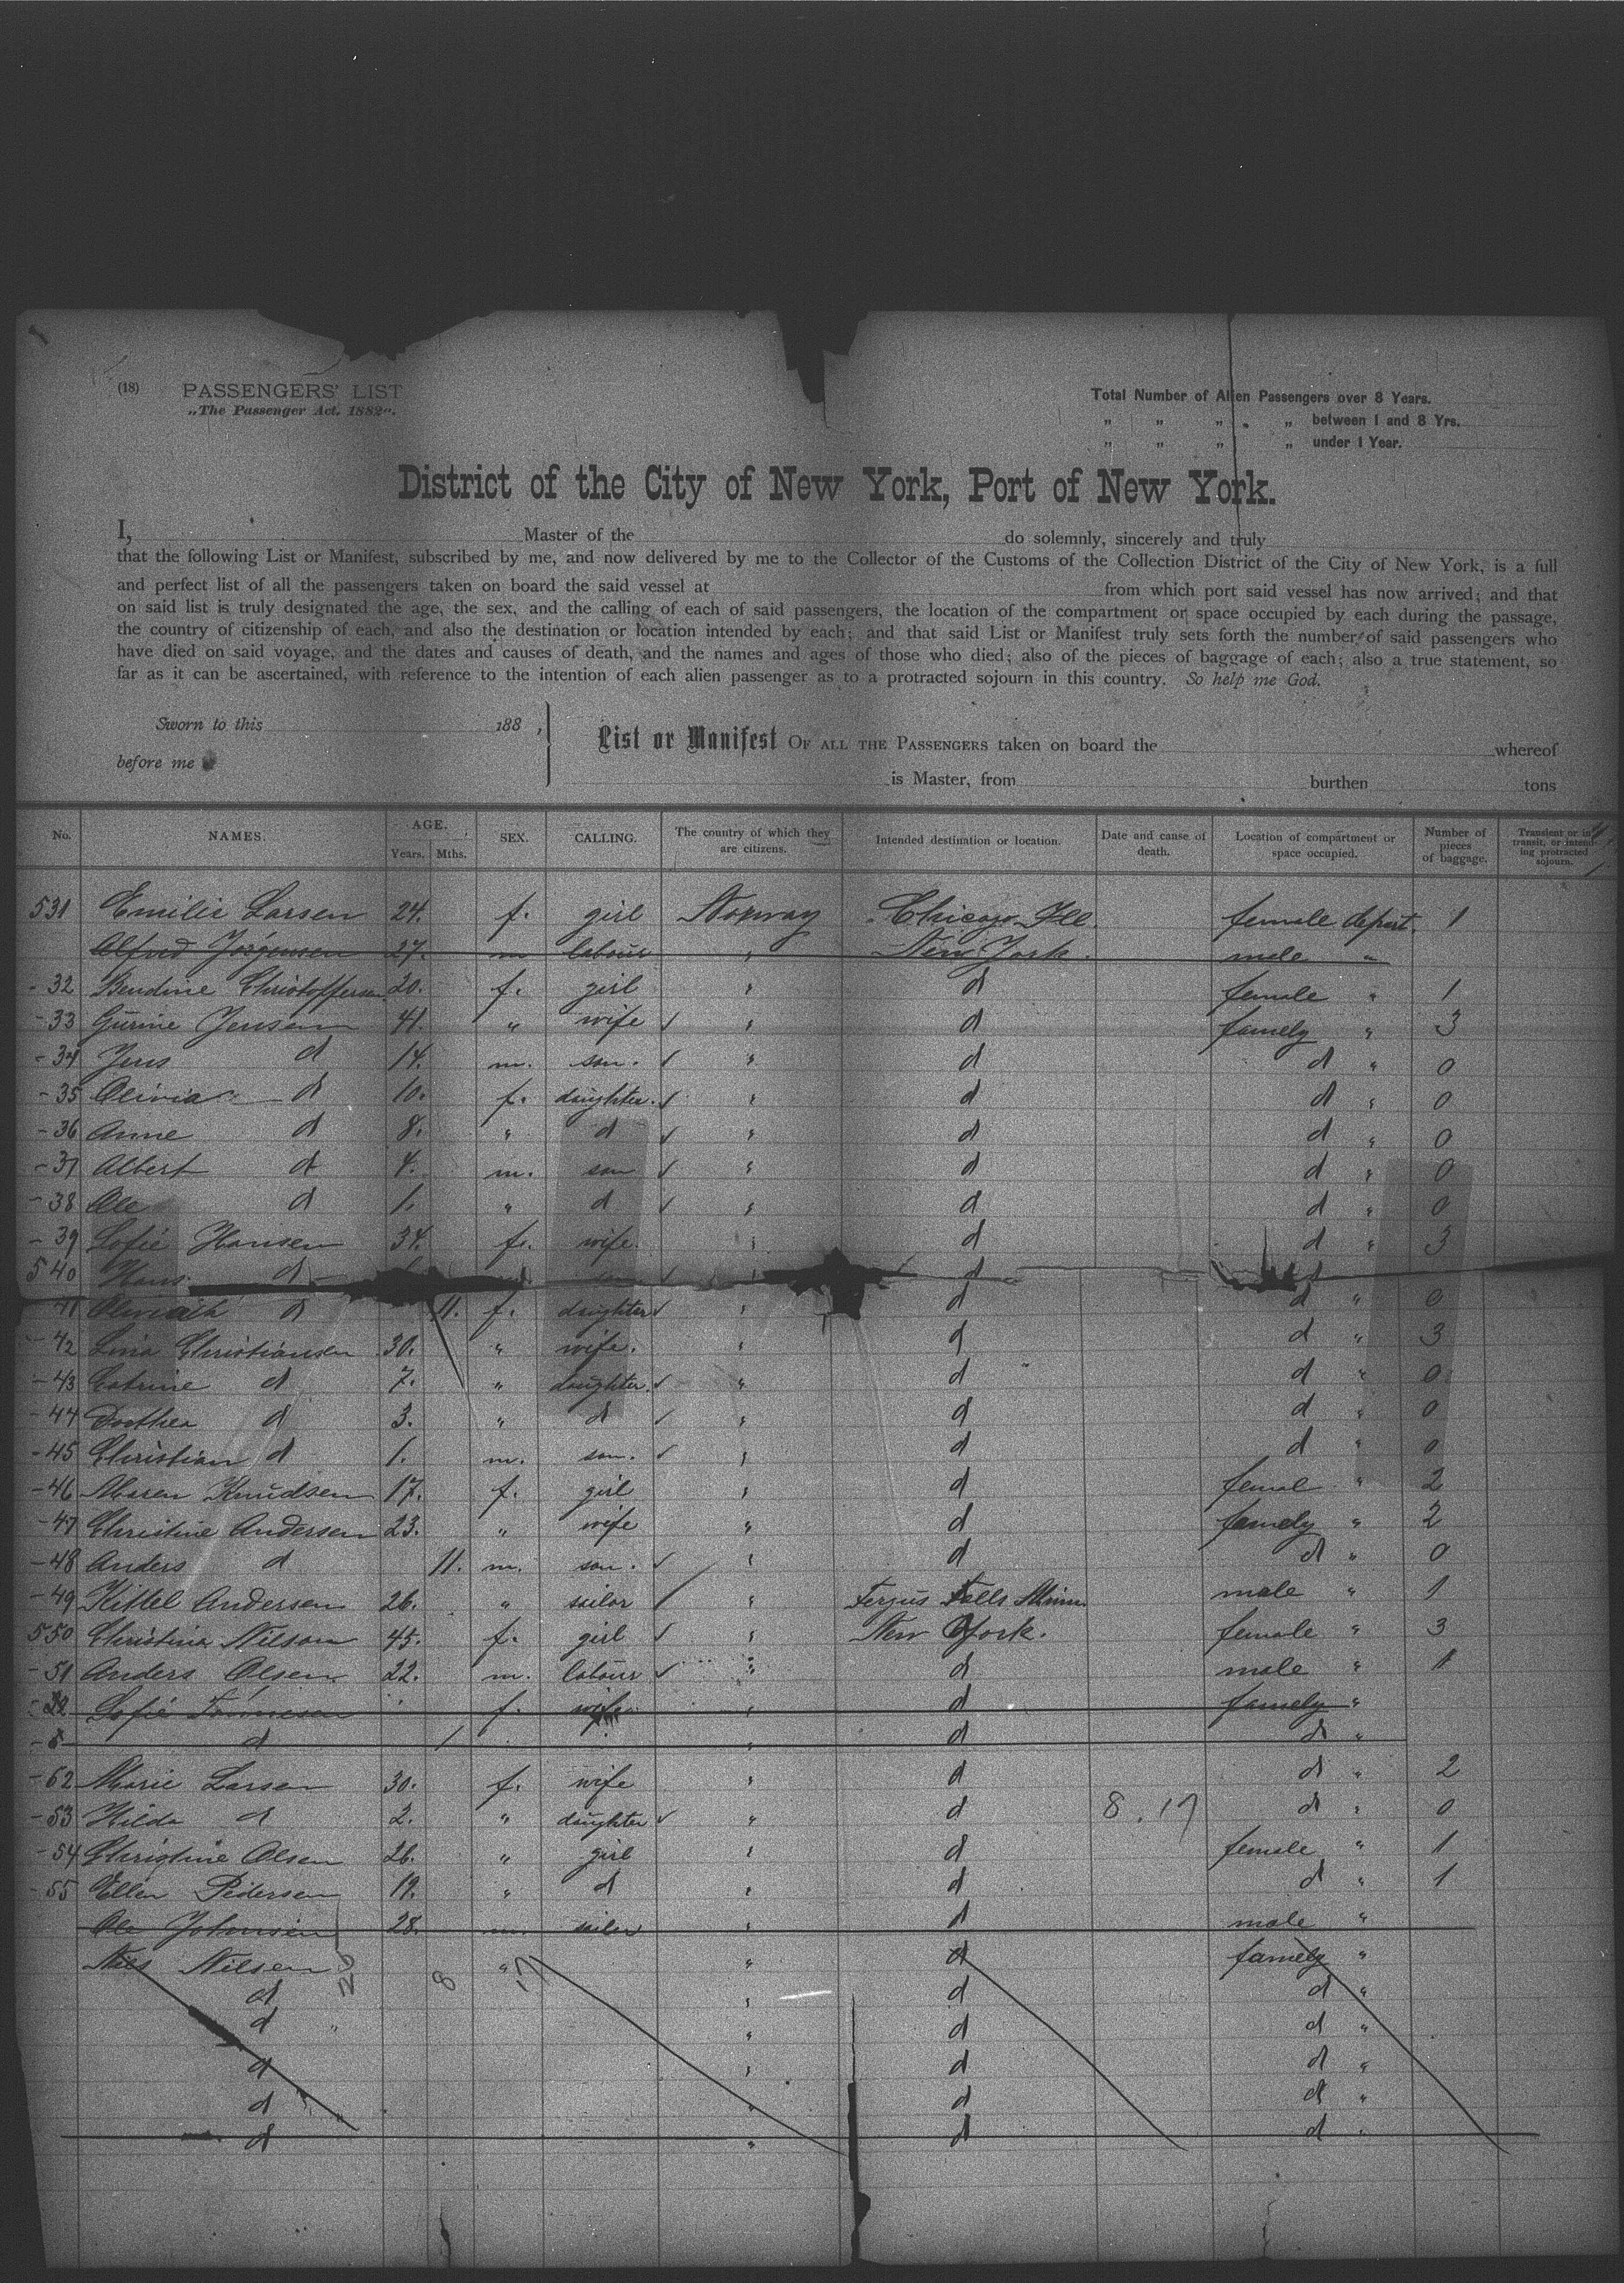 (18) PASSENGERS' LIST
„The Passenger Act, 1882“.
Total Number of Alien Passengers over 8 Years.
„ „ „ „ „ between 1 and 8 Yrs.
„ „ „ „ under 1 Year.
District of the City of New York, Port of New York.
I, Master of the do solemnly, sincerely and truly
that the following List or Manifest, subscribed by me, and now delivered by me to the Collector of the Customs of the Collection District of the City of New York, is a full
and perfect list of all the passengers taken on board the said vessel at from which port said vessel has now arrived; and that
on said list is truly designated the age, the sex, and the calling of each of said passengers, the location of the compartment or space occupied by each during the passage,
the country of citizenship of each, and also the destination or location intended by each; and that said List or Manifest truly sets forth the number of said passengers who
have died on said voyage, and the dates and causes of death, and the names and ages of those who died; also of the pieces of baggage of each; also a true statement, so
far as it can be ascertained, with reference to the intention of each alien passenger as to a protracted sojourn in this country. So help me God.
Sworn to this 188 ,
before me
List or Manifest OF ALL THE PASSENGERS taken on board the whereof
is Master, from burthen tons
No. NAMES. AGE. Years. Mths. SEX. CALLING. The country of which they are citizens. Intended destination or location. Date and cause of death. Location of compartment or space occupied. Number of pieces of baggage. Transient or in transit, or intending protracted sojourn.
531 Emilie Larsen 24. f. girl Norway Chicago Ill. female depart. 1
Alfred Jorgensen 27. m labour " New York. male "
- 32 Bendine Christoffersen 20. f. girl " d female " 1
- 33 Gurine Jensen 41. " wife " d famely " 3
- 34 Jens d 14. m. son. " d d " 0
- 35 Olivia d 10. f. daughter. " d d " 0
- 36 Anne d 8. " d " d d " 0
- 37 Albert d 4. m. son " d d " 0
- 38 Ole d 1. " d " d d " 0
- 39 Sofie Hansen 34. f. wife. " d d " 3
540 Hans d son " d d
41 d 11. f. daughter " d d " 0
- 42 Lina Christiansen 30. " wife. " d d " 3
- 43 Catrine d 7. " daughter. " d d " 0
- 44 Dorthea d 3. " d " d d " 0
- 45 Christian d 1. m. son. " d d " 0
- 46 Maren Knudsen 17. f. girl " d femal " 2
- 47 Christine Andersen 23. " wife " d famely " 2
- 48 Anders d 11. m. son. " d d " 0
- 49 Kittel Andersen 26. " sailor " Fergus Falls Minn. male " 1
550 Christina Nilson 45. f. girl " New York. female " 3
- 51 Anders Olsen 22. m. labour " d male " 1
Sofie f. wife " d famely "
d 1 " d d "
- 52 Marie Larsen 30. f. wife " d d " 2
- 53 Hilda d 2. " daughter " d 8.17 d " 0
- 54 Christine Olsen 26. " girl " d female " 1
- 55 Ellen Pedersen 19. " d " d d " 1
Ole Johnsen 28. m. sailor " d male "
Nils Nilsen 20 8 " 17 " d famely "
d " d d "
d " " d d "
d " d d "
d " d d "
d " d d "